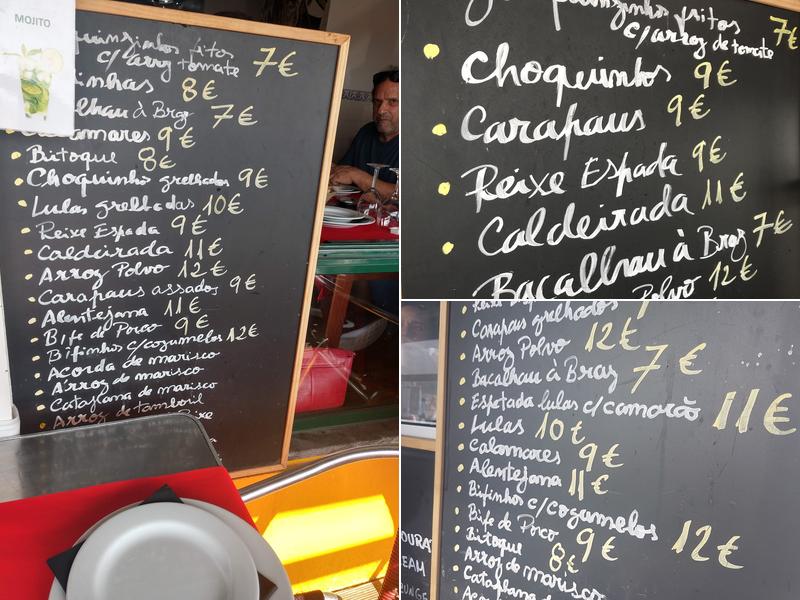 MOJITO
fritos
c/arroz tomate 7€
inhas 8€
lhau à Braz 7€
Calamares 9€
Bitoque 8€
Choquinhos grelhados 9€
Lulas grelhadas 10€
Peixe Espada 9€
Caldeirada 11€
Arroz Polvo 12€
Carapaus assados 9€
Alentejana 11€
Bife de Porco 9€
Bifinhos c/cogumelos 12€
Açorda de marisco
Arroz de marisco
Cataplana de marisco
Arroz de tamboril
Peixe
fritos
c/arroz de tomate 7€
Choquinhos 9€
Carapaus 9€
Peixe Espada 9€
Caldeirada 11€
Bacalhau à Braz 7€
Polvo 12€
Carapaus grelhados
Arroz Polvo 12€
Bacalhau à Braz 7€
Espetada lulas c/camarão 11€
Lulas 10€
Calamares 9€
Alentejana 11€
Bifinhos c/cogumelos 12€
Bife de Porco 9€
Bitoque 8€
Arroz de marisco
Cataplana de